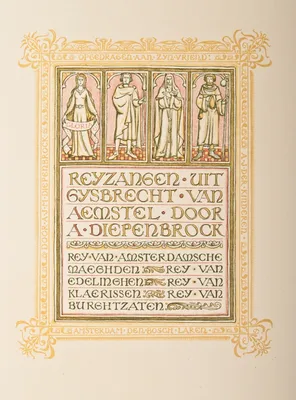 OPGEDRAGEN·AAN·ZYN·VRIEND
REYZANGEN·UIT
GYSBRECHT·VAN
AEMSTEL·DOOR
A·DIEPENBROCK
REY·VAN·AMSTERDAMSCHE
MAEGHDEN REY·VAN
EDELINGHEN REY·VAN
KLAERISSEN REY·VAN
BURGHTZATEN
AMSTERDAM·DEN·BOSCH·LAREN